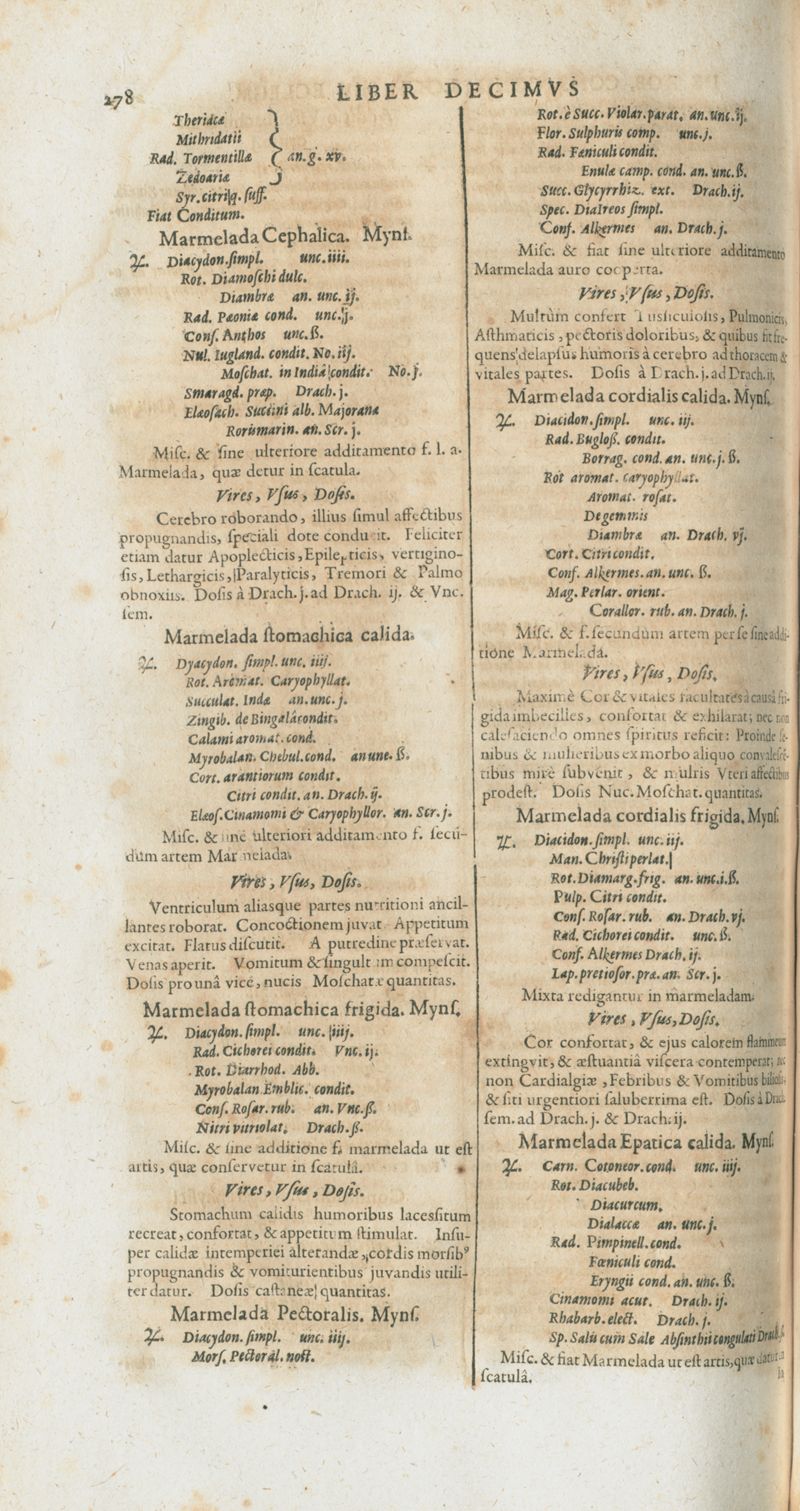 278
LIBER DECIMVS
Theriacæ
Mithridatii
Rad. Tormentillæ an. g. xv.
Zedoariæ
Syr. citri q. ſuff.
Fiat Conditum.
Marmelada Cephalica. Mynſ.
♃. Diacydon. ſimpl. unc. iiii.
Rot. Diamoſchi dulc.
Diambræ an. unc. ij.
Rad. Pæoniæ cond. unc. j.
Conſ. Anthos unc. ß.
Nul. Iugland. condit. No. iij.
Moſchat. in Indiâ condit. No. j.
Smaragd. præp. Drach. j.
Elæoſach. Succini alb. Majoranæ
Rorismarin. an. Scr. j.
Miſc. & ſine ulteriore additamento f. l. a.
Marmelada, quæ detur in ſcatula.
Vires, Vſus, Doſis.
Cerebro roborando, illius ſimul affectibus
propugnandis, ſpeciali dote conducit. Feliciter
etiam datur Apoplecticis, Epilepticis, vertigino-
ſis, Lethargicis, Paralyticis, Tremori & Palmo
obnoxiis. Doſis à Drach. j. ad Drach. ij. & Vnc.
ſem.
Marmelada ſtomachica calida.
♃. Dyacydon. ſimpl. unc. iiij.
Rot. Aromat. Caryophyllat.
Succulat. Indæ an. unc. j.
Zingib. de Bingala condit.
Calami aromat. cond.
Myrobalan. Chebul. cond. an unc. ß.
Cort. arantiorum condit.
Citri condit. an. Drach. ij.
Elæoſ. Cinamomi & Caryophyllor. an. Scr. j.
Miſc. & ſine ulteriori additamento f. ſecū-
dùm artem Marmelada.
Vires, Vſus, Doſis.
Ventriculum aliasque partes nutritioni ancil-
lantes roborat. Concoctionem juvat Appetitum
excitat. Flatus diſcutit. A putredine præſervat.
Venas aperit. Vomitum & ſingultum compeſcit.
Doſis pro unâ vice, nucis Moſchatæ quantitas.
Marmelada ſtomachica frigida. Mynſ.
♃. Diacydon. ſimpl. unc. iiij.
Rad. Cichorei condit. Vnc. ij.
Rot. Diarrhod. Abb.
Myrobalan. Emblic. condit.
Conſ. Roſar. rub. an. Vnc. ß.
Nitri vitriolat. Drach. ß.
Miſc. & ſine additione f. marmelada ut eſt
artis, quæ conſervetur in ſcatulâ.
Vires, Vſus, Doſis.
Stomachum calidis humoribus laceſſitum
recreat, confortat, & appetitum ſtimulat. Inſu-
per calidæ intemperiei alterandæ, cordis morſibꝰ
propugnandis & vomiturientibus juvandis utili-
ter datur. Doſis caſtaneæ quantitas.
Marmelada Pectoralis. Mynſ.
♃. Diacydon. ſimpl. unc. iiij.
Morſ. Pectoral. noſt.
Rot. è Succ. Violar. parat. an. unc. ij.
Flor. Sulphuris comp. unc. j.
Rad. Fæniculi condit.
Enulæ camp. cond. an. unc. ß.
Succ. Glycyrrhiz. ext. Drach. ij.
Spec. DiaIreos ſimpl.
Conf. Alkermes an. Drach. j.
Miſc. & fiat ſine ulteriore additamento
Marmelada auro cooperta.
Vires, Vſus, Doſis.
Multùm confert Tusſiculoſis, Pulmonicis,
Aſthmaticis, pectoris doloribus, & quibus fit fre-
quens delapſus humoris à cerebro ad thoracem &
vitales partes. Doſis à Drach. j. ad Drach. ij.
Marmelada cordialis calida. Mynſ.
♃. Diacidon. ſimpl. unc. iij.
Rad. Bugloß. condit.
Borrag. cond. an. unc. j. ß.
Rot aromat. caryophyllat.
Aromat. roſat.
De gemmis
Diambræ an. Drach. vj.
Cort. Citri condit.
Conf. Alkermes. an. unc. ß.
Mag. Perlar. orient.
Corallor. rub. an. Drach. j.
Miſc. & f. ſecundùm artem per ſe ſine addi-
tione Marmelada.
Vires, Vſus, Doſis.
Maximè Cor & vitales facultates à causâ fri-
gida imbecilles, confortat & exhilarat; nec non
calefaciendo omnes ſpiritus reficit: Proinde ſe-
nibus & mulieribus ex morbo aliquo convaleſcē-
tibus mirè ſubvenit, & multis Vteri affectibus
prodeſt. Doſis Nuc. Moſchat. quantitas.
Marmelada cordialis frigida. Mynſ.
♃. Diacidon. ſimpl. unc. iij.
Man. Chriſti perlat.
Rot. Diamarg. frig. an. unc. i. ß.
Pulp. Citri condit.
Conſ. Roſar. rub. an. Drach. vj.
Rad. Cichorei condit. unc. ß.
Conf. Alkermes Drach. ij.
Lap. pretioſor. præ. an. Scr. j.
Mixta redigantur in marmeladam.
Vires, Vſus, Doſis.
Cor confortat, & ejus calorem flammeum
extingvit, & æſtuantiâ viſcera contemperat; nec
non Cardialgiæ, Febribus & Vomitibus bilioſis,
& ſiti urgentiori ſaluberrima eſt. Doſis à Drach.
ſem. ad Drach. j. & Drach. ij.
Marmelada Epatica calida. Mynſ.
♃. Carn. Cotoneor. cond. unc. iiij.
Rot. Diacubeb.
Diacurcum.
Dialaccæ an. unc. j.
Rad. Pimpinell. cond.
Fœniculi cond.
Eryngii cond. an. unc. ß.
Cinamomi acut. Drach. ij.
Rhabarb. elect. Drach. j.
Sp. Salis cum Sale Abſinthii congulati Drach. ß.
Miſc. & fiat Marmelada ut eſt artis, quæ datur in
ſcatulâ.